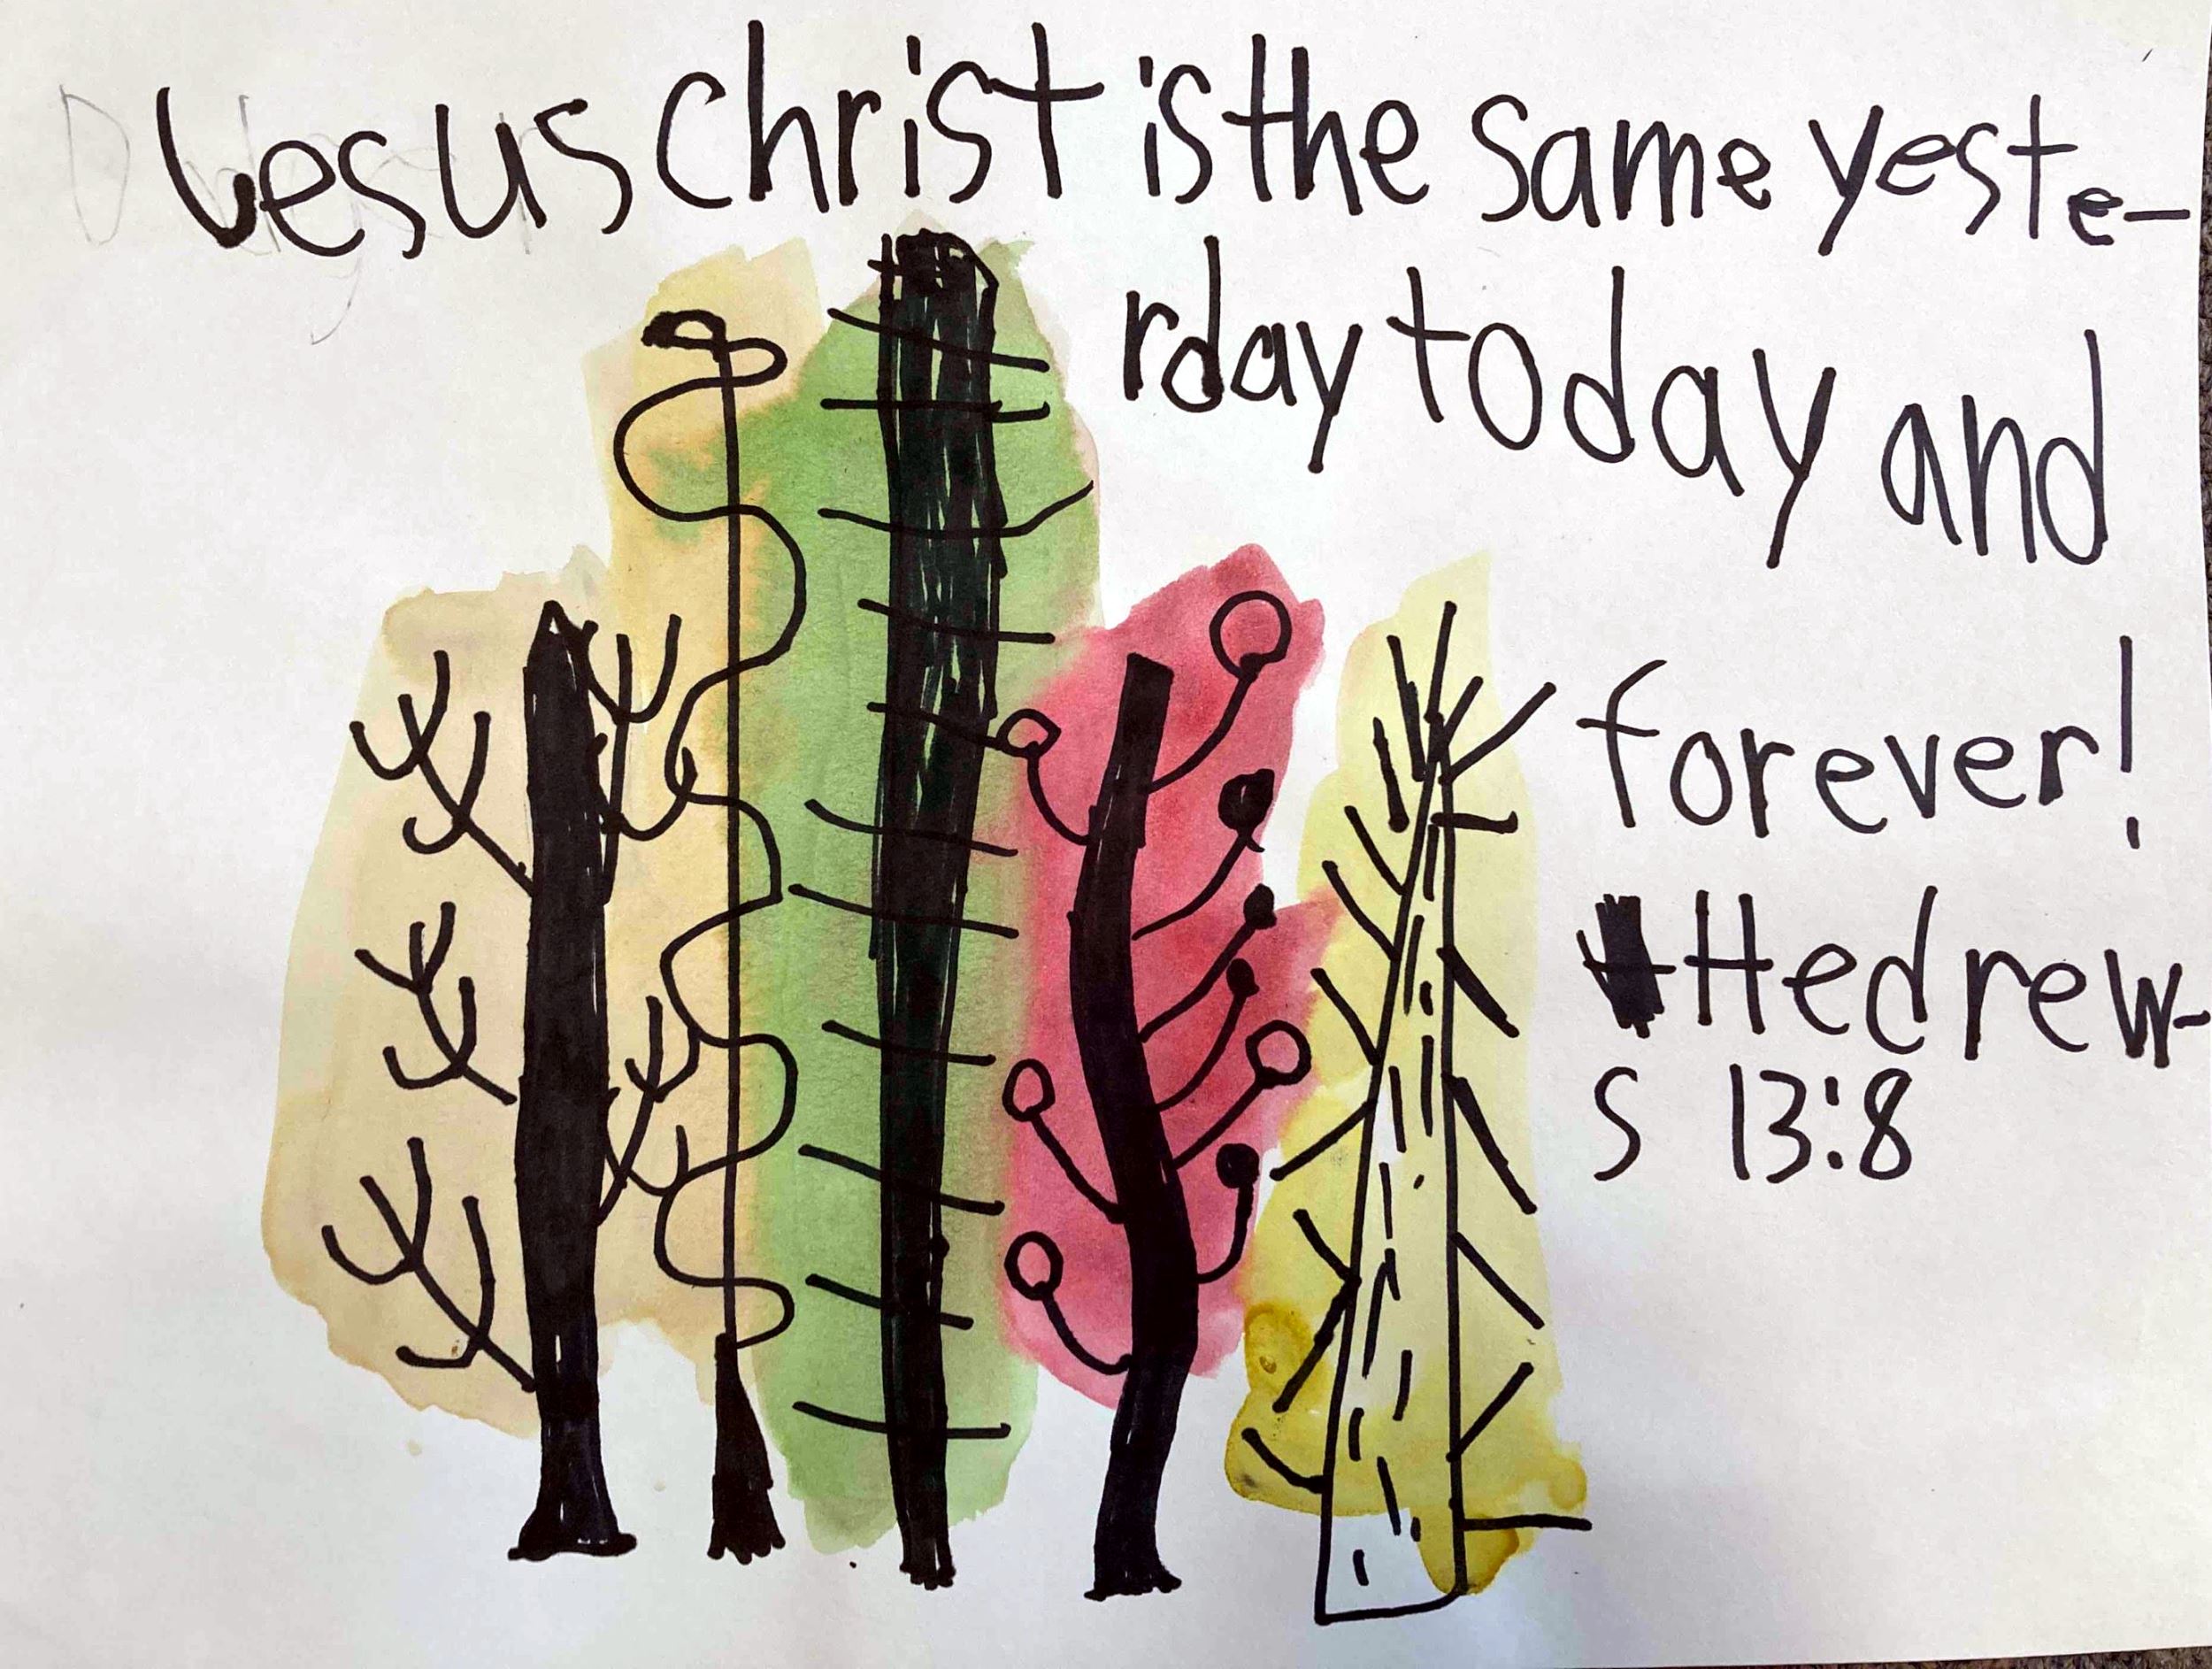 Jesus Christ is the same yeste-
rday today and
forever!
Hedrew-
s 13:8